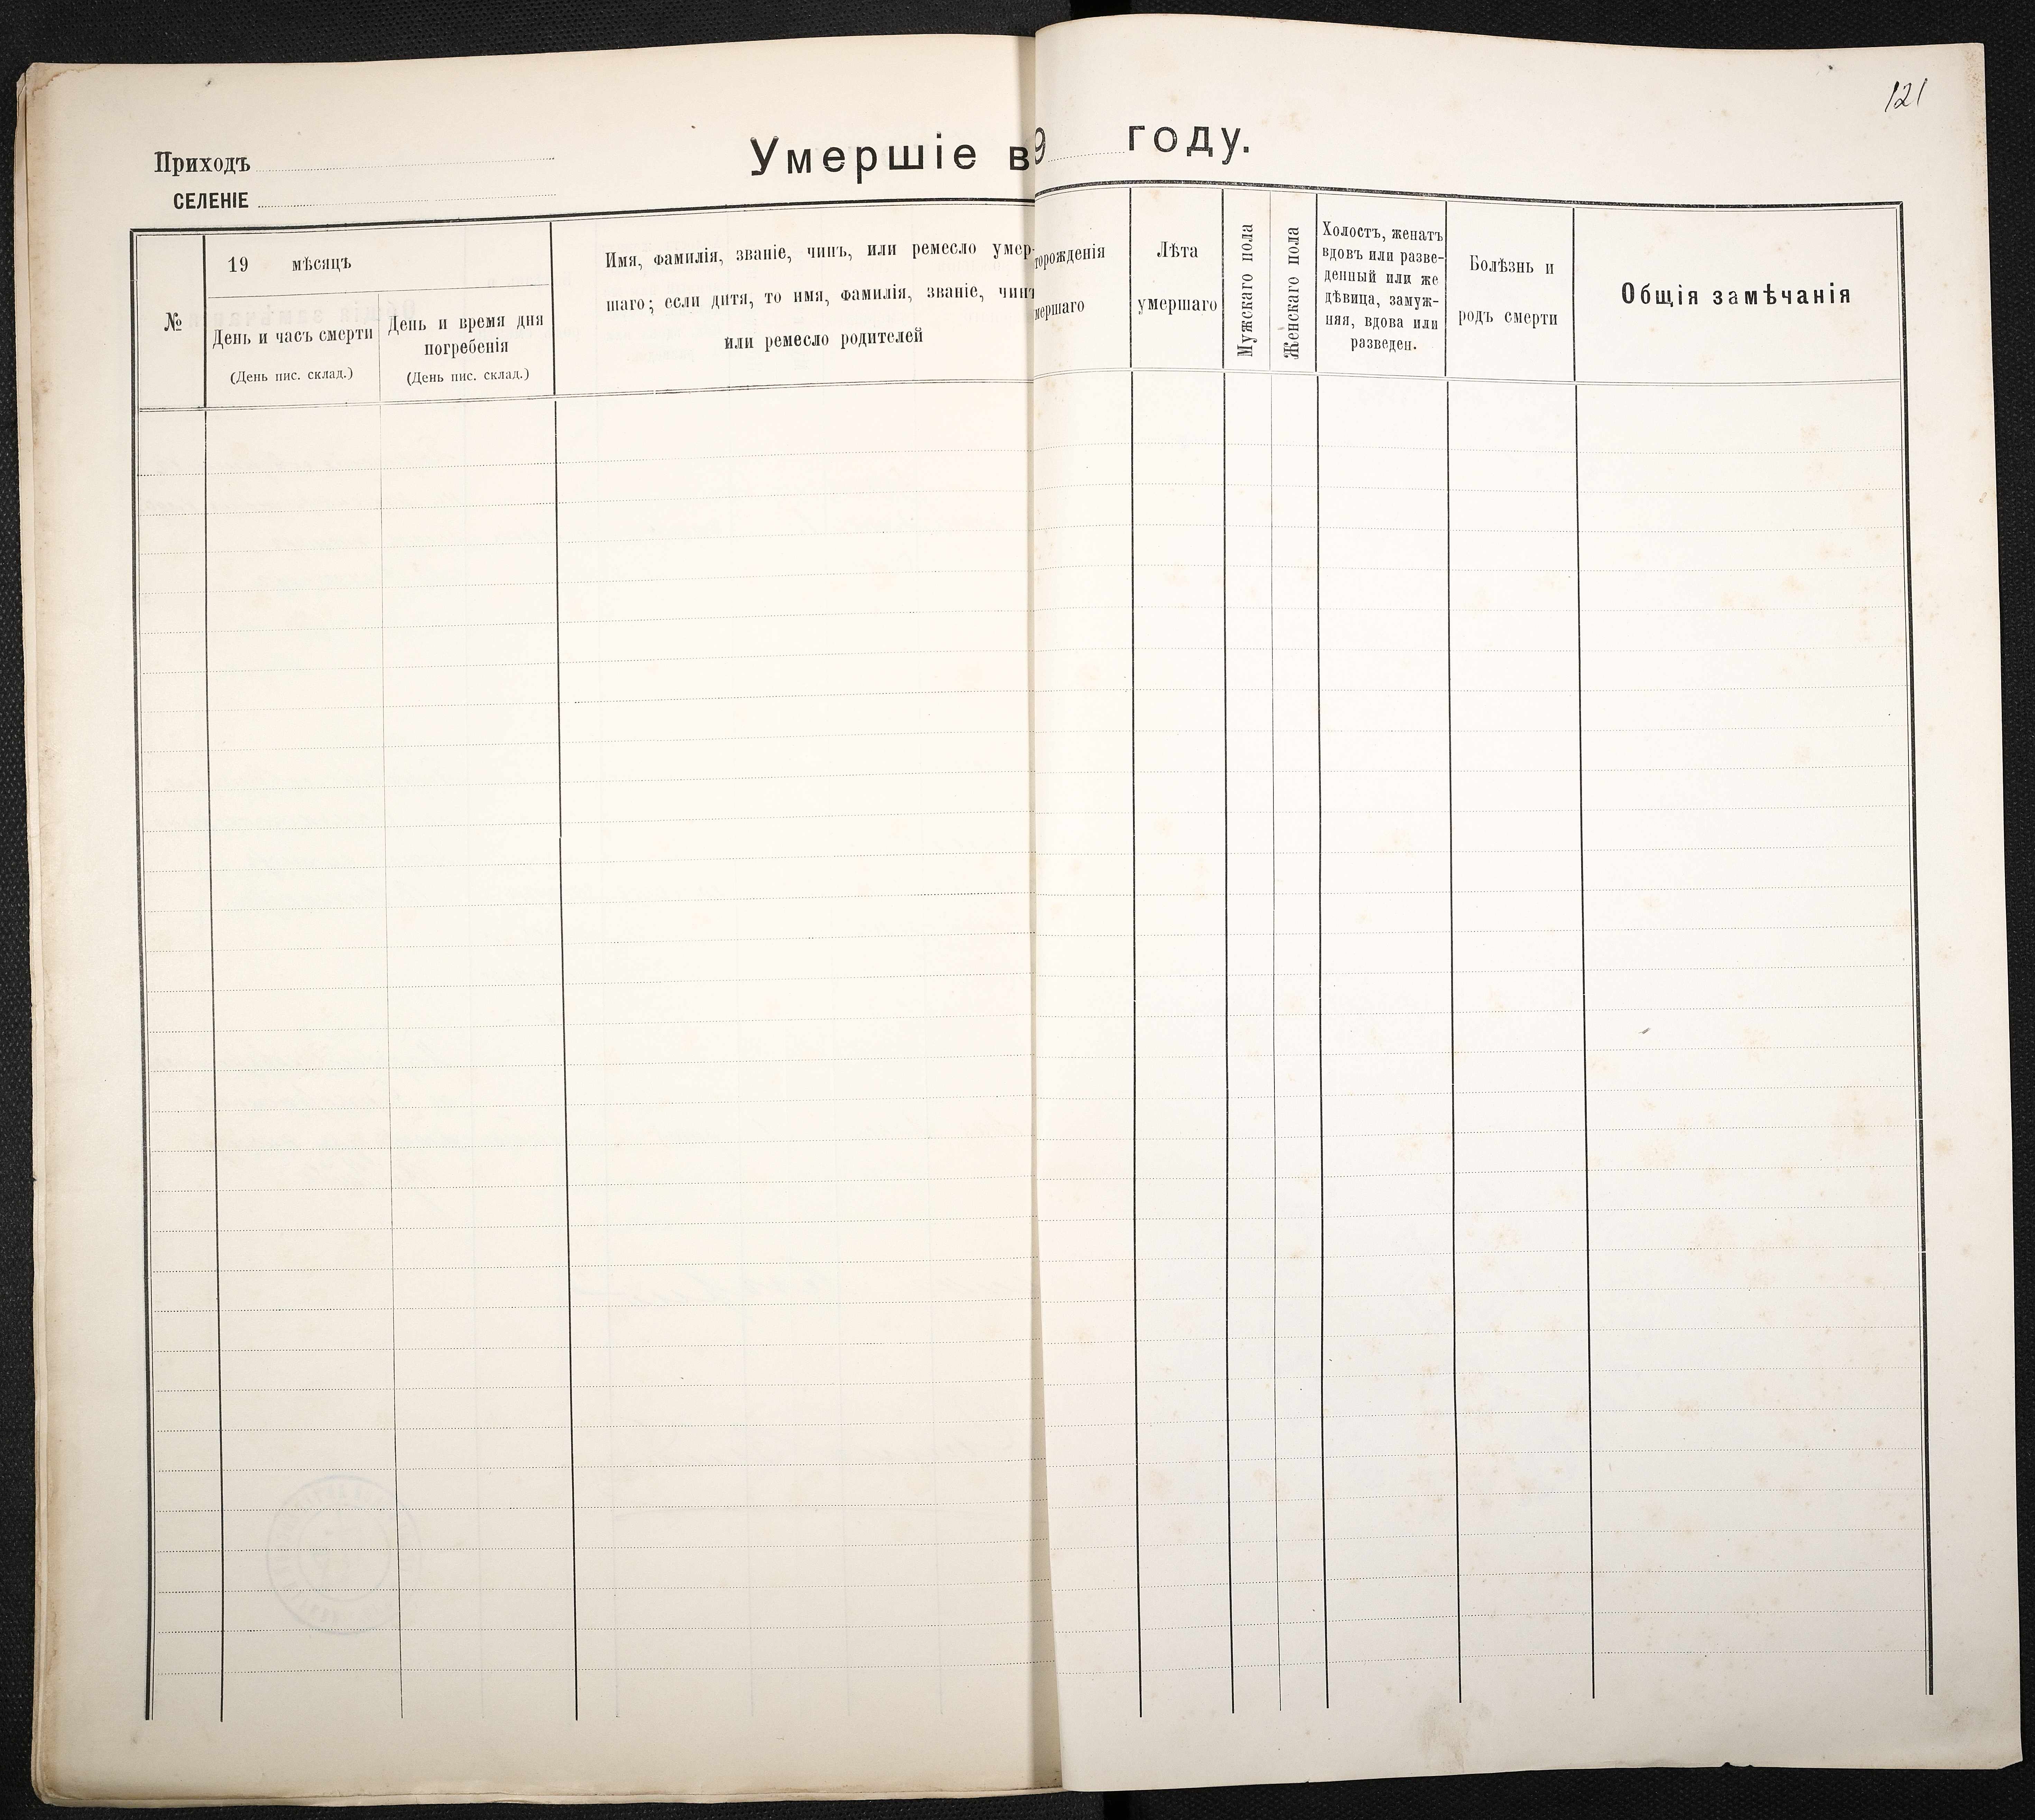 121
Умершіе в 9 году.
Приходъ
СЕЛЕНІЕ
№
19 мѣсяцъ
День и часъ смерти
(День пис. склад.)
День и время дня
погребенія
(День пис. склад.)
Имя, фамилія, званіе, чинъ, или ремесло умер-
шаго; если дитя, то имя, фамилія, званіе, чинъ
или ремесло родителей
торожденія
мершаго
Лѣта
умершаго
Мужскаго пола
Женскаго пола
Холостъ, женатъ
вдовъ или разве-
денный или же
дѣвица, замуж-
няя, вдова или
разведен.
Болѣзнь и
родъ смерти
Общія замѣчанія